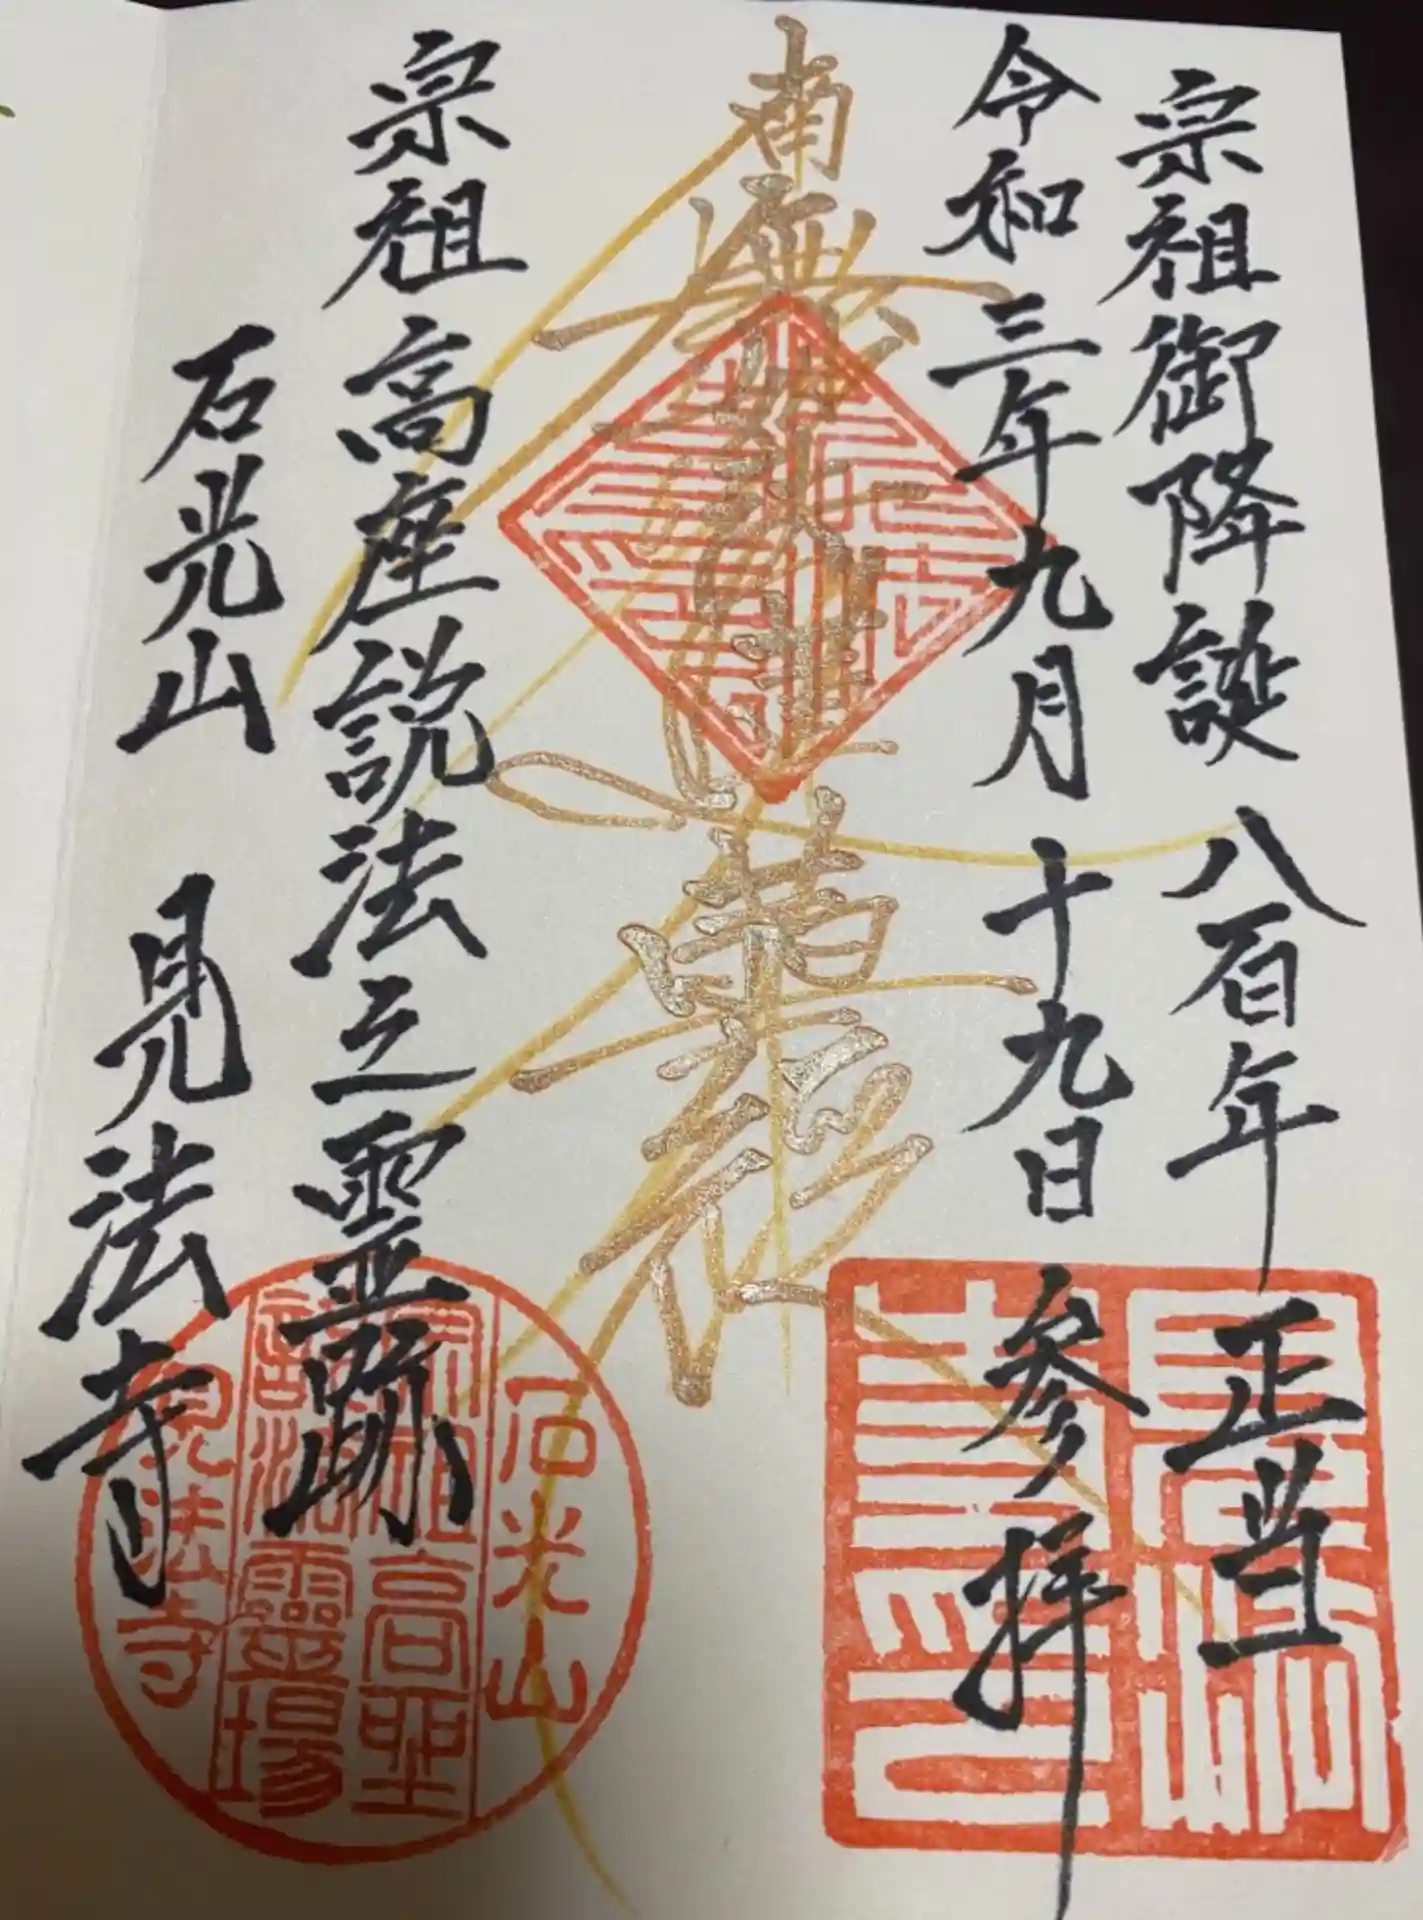 宗祖御降誕八百年正当
令和三年九月十九日参拝
南無妙法蓮華経
宗祖高座説法之霊跡
石光山 見法寺
石光山
宗祖高座
説法霊場
見法寺